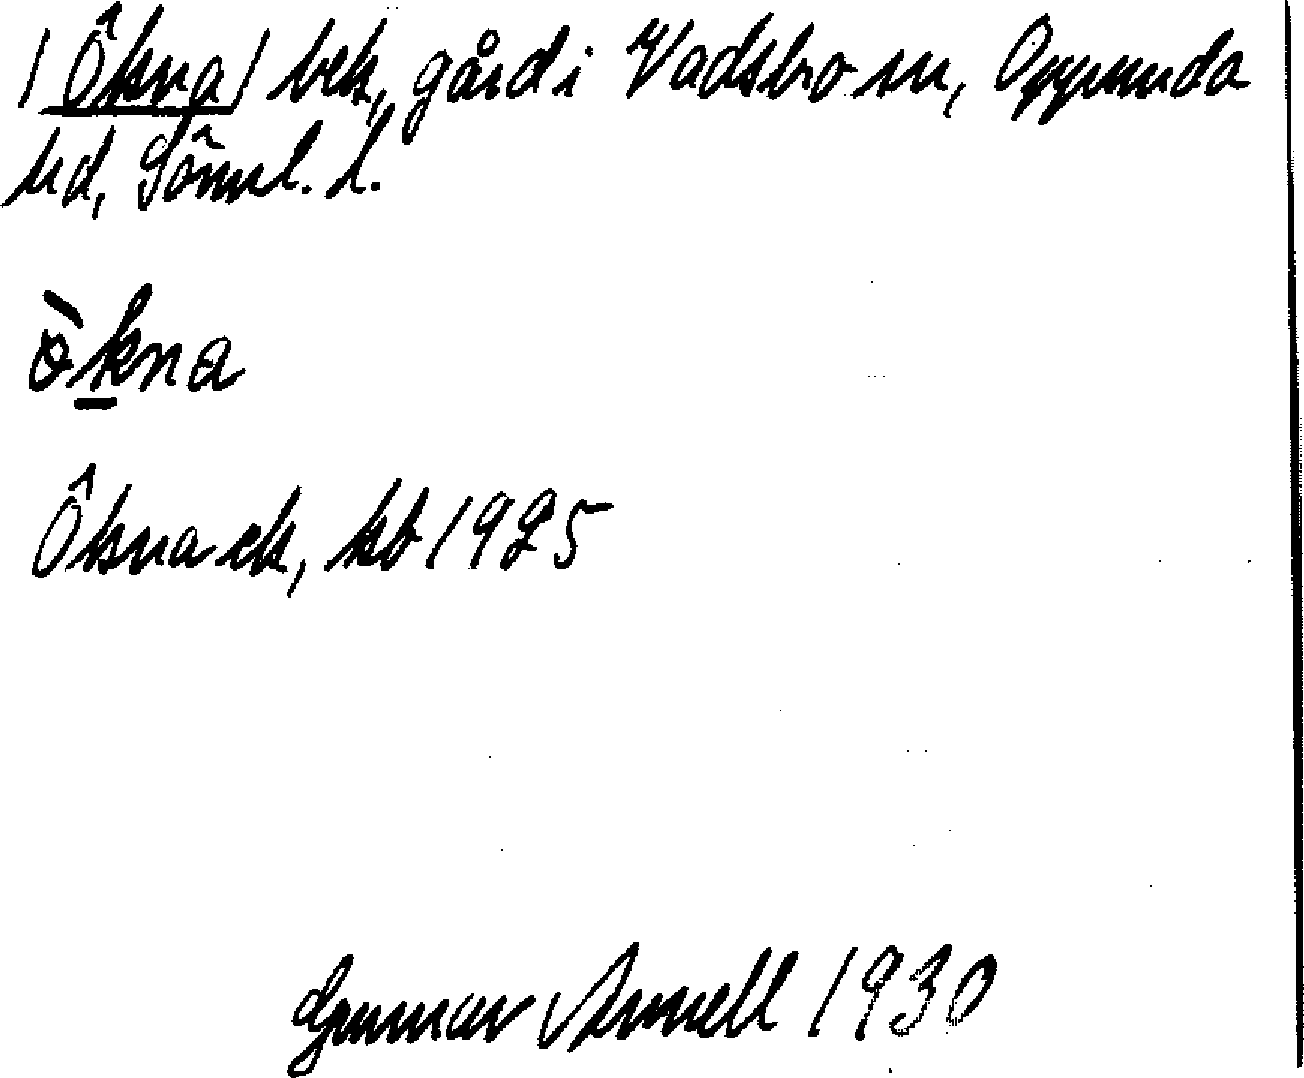 /Ökna/ bek, gård i Vadsbro sn, Oppunda
hd, Sörml. l.
ö̀kna
Ökna ek, kb 1925
Gunnar Arnell 1930